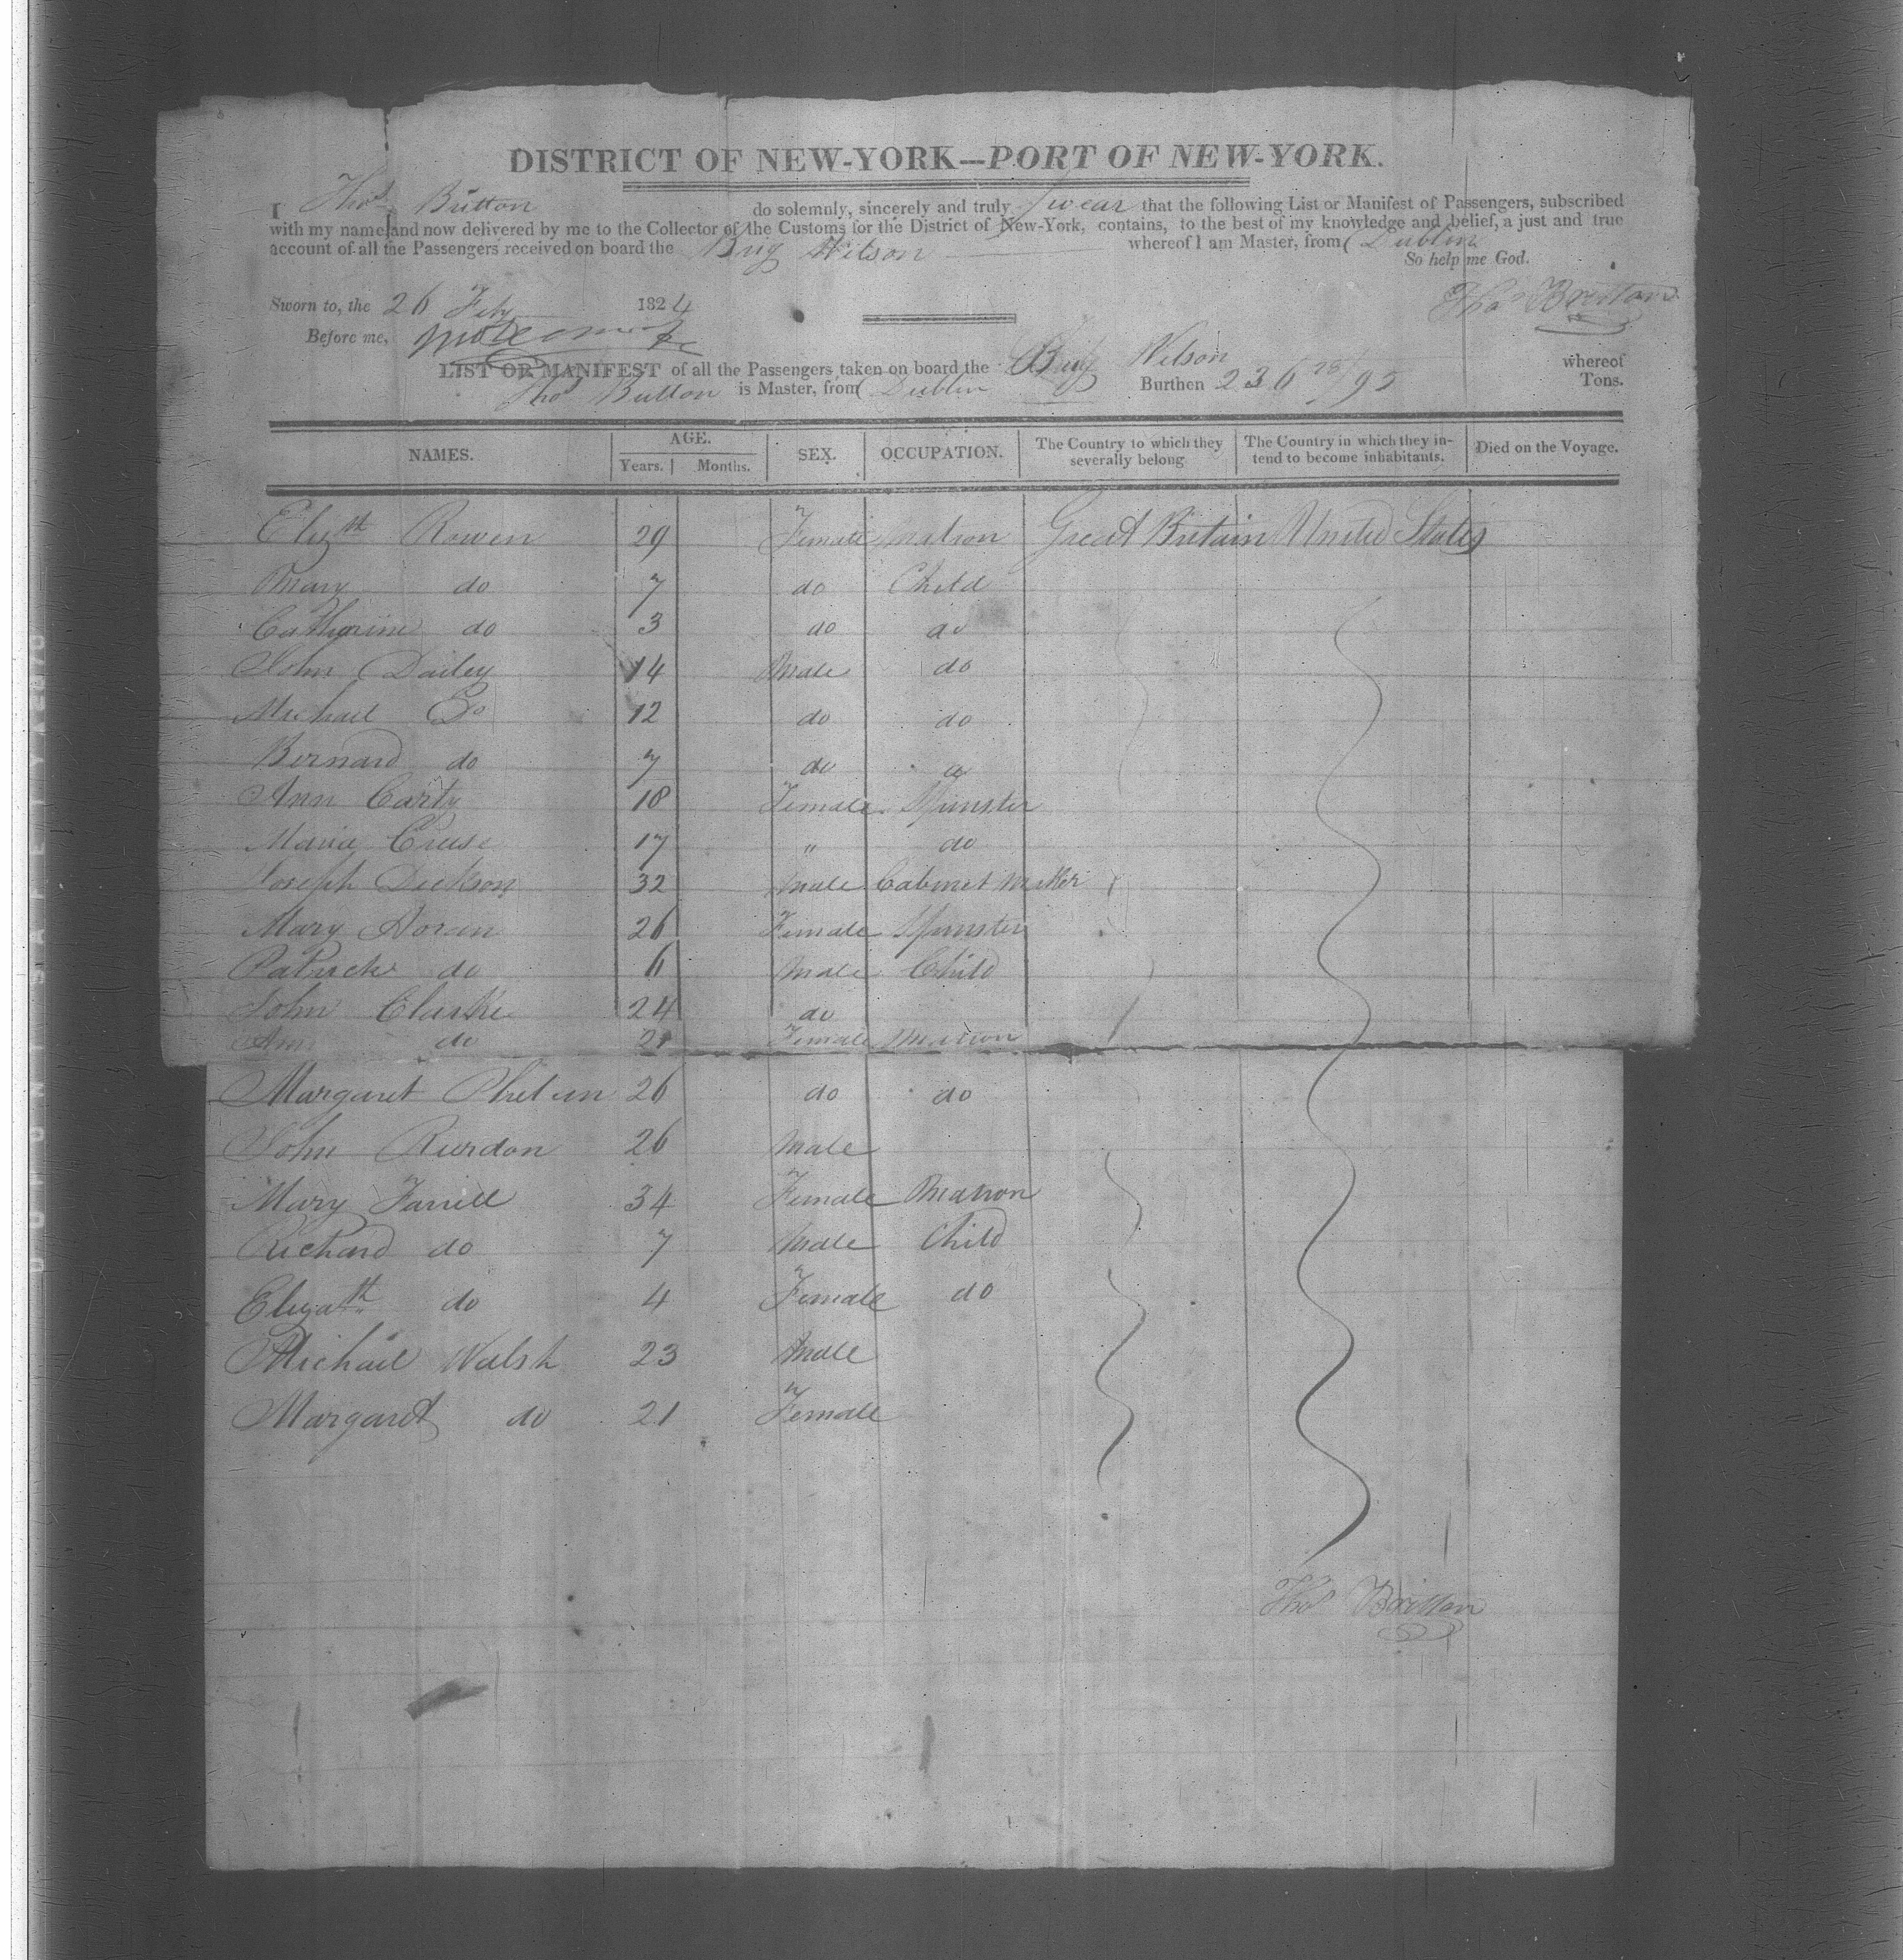 DISTRICT OF NEW-YORK—PORT OF NEW-YORK.
I Thos Britton do solemnly, sincerely and truly swear that the following List or Manifest of Passengers, subscribed
with my name and now delivered by me to the Collector of the Customs for the District of New-York, contains, to the best of my knowledge and belief, a just and true
account of all the Passengers received on board the Brig Wilson whereof I am Master, from Dublin
So help me God.
Sworn to, the 26 Feby 1824 Thos Britton
Before me,
LIST OR MANIFEST of all the Passengers taken on board the Brig Wilson whereof
Thos Britton is Master, from Dublin Burthen 236 28/95 Tons.
NAMES. AGE. Years. Months. SEX. OCCUPATION. The Country to which they severally belong The Country in which they intend to become inhabitants. Died on the Voyage.
Elizth Rowen 29 Female Matron Great Britain United States
Mary do 7 do Child
Catherine do 3 do do
John Dailey 14 Male do
Michael Do 12 do do
Bernard do 7 do
Ann Carty 18 Female Spinster
Maria Cruse 17 " do
Joseph Dickson 32 Male Cabinet Maker
Mary Doran 26 Female Spinster
Patrick do 6 Male Child
John Clarke 24 do
Ann do Female Matron
Margaret Phelan 26 do do
John Rierdon 26 Male
Mary Farrell 34 Female Matron
Richard do 7 Male Child
Elizath do 4 Female do
Michael Walsh 23 Male
Margaret do 21 Female
Thos Britton